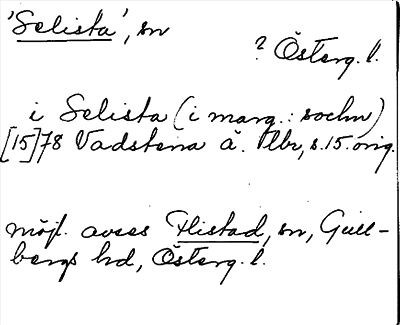 'Selista', sn
? Österg. l.
i Selista (i marg.: sochn)
[15]78 Vadstena ä. Tlbr, s. 15. orig.
möjl. avses Flistad, sn, Gull-
bergs hd, Österg. l.